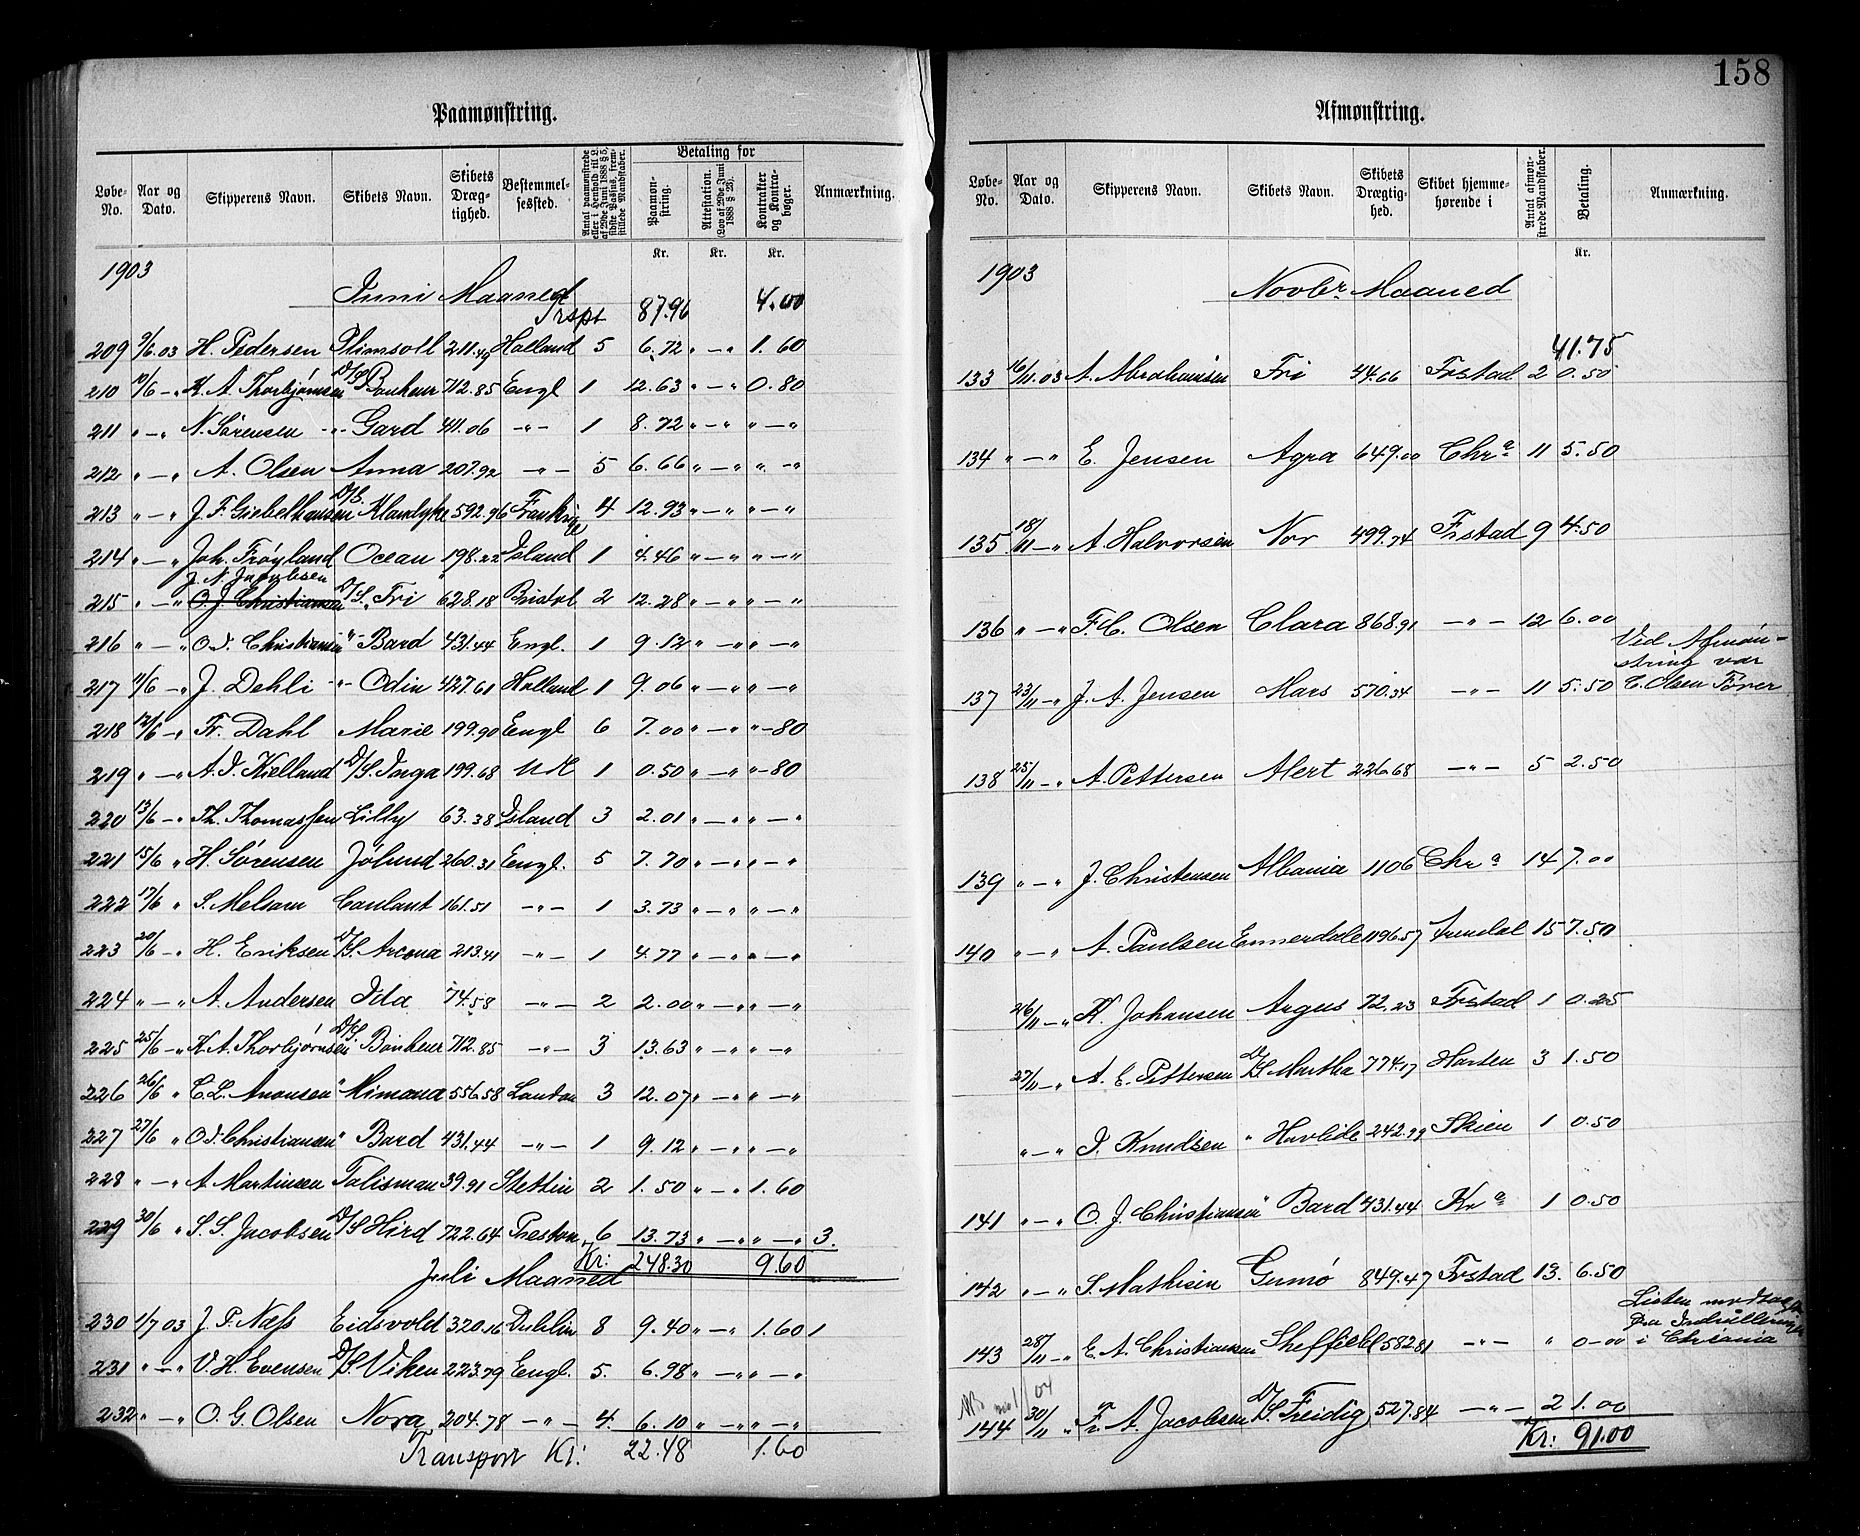 158
Paamønstring.
Løbe-No. | Aar og Dato. | Skipperens Navn. | Skibets Navn. | Skibets Dræg-tighed. | Bestemmel-sessted. | Antal paamønstrede eller i Henhold til L. af 29de Juni 1888 § 5, sidste Passus, frem-stillede Mandskaber. | Betaling for | Paamøn-string. | Attestation. (Lov af 29de Juni 1888 § 23). | Kontrakter og Kontra-bøger. | Anmærkning.
Kr. | Kr. | Kr.
1903
Juni Maaned
Trspt 87.96 4.00
209 9/6.03 H. Pedersen Plimsoll 211.49 Holland 5 6.72 " — " 1.60
210 10/6 — " K. A. Thorbjørnsen D/S Bonheur 712.85 Engl 1 12.63 " — " 0.80
211 " — " N. Sørensen -"- Gard 411.06 — " — 1 8.72 " — " " — "
212 " — " A. Olsen Anna 207.92 — " — 5 6.66 " — " " — "
213 " — " J. F. Giebelhausen D/S. Klondyke 592.96 Frankrige 4 12.93 " — " " — "
214 " — " Joh. Frøyland Ocean 198.22 Island 1 4.46 " — " " — "
J. N. Jacobsen
215 " — " O. J. Christiansen D/S. Fri 628.18 Bristol 2 12.28 " — " " — "
216 " — " O. J. Christiansen " Bard 431.44 Engl. 1 9.12 " — " " — "
217 11/6 — " J. Dehli -"- Odin 427.61 Holland 1 9.06 " — " " — "
218 12/6 — " Fr. Dahl Marie 199.90 Engl 6 7.00 " — " " — 80
219 " — " A. J. Kielland D/S. Inga 199.68 1 0.50 " — " " — 80
220 13/6 — " Th. Thomassen Lilly 63.38 Island 3 2.01 " — " " — "
221 15/6 " H. Sørensen Jølund 260.31 Engl. 5 7.70 " — " " — "
222 17/6 " S. Melsom 161.51 — " — 1 3.73 " — " " — "
223 20/6 — " H. Eriksen D/S. Arcona 213.41 — " — 1 4.77 " — " " — "
224 " — " A. Andersen Ida 74.58 — " — 2 2.00 " — " " — "
225 25/6 — " K. A. Thorbjørnsen D/S. Bonheur 712.85 — " — 3 13.63 " — " " — "
226 26/6 " C. L. Anonsen " Mimona 556.58 London 3 12.07 " — " " — "
227 27/6 " O. J. Christiansen " Bard 431.44 — " — 1 9.12 " — " " — "
228 " — " A. Martinsen Talisman 39.91 Stettin 2 1.50 " — " 1.60
229 30/6 " S. S. Jacobsen D/S Hird 722.64 Preston 6 13.73 " — " " — " 3.
Kr: 248.30 9.60
Juli Maaned
230 1/7 03 J. P. Næss Eidsvold 320.16 Dublin 8 9.40 " — " 1.60 1
231 " — " V. H. Evensen D/S Viken 223.79 Engl. 5. 6.98 " — " " — "
232 " — " O. G. Olsen Nora 204.78 — " — 4. 6.10 " — " " — "
Transport Kr: 22.48 1.60
Afmønstring.
Løbe-No. | Aar og Dato. | Skipperens Navn. | Skibets Navn. | Skibets Drægtig-hed. | Skibet hjemme-hørende i | Antal afmøn-strede Mandskaber. | Betaling. | Anmærkning.
Kr.
1903
Novbr Maaned
41.75
133 16/11.03 A. Abrahamsen Fri 44.66 Frstad 2 0.50
134 " — " E. Jensen Agra 649.00 Chra 11 5.50
135 18/11 — " A. Halvorsen Nor 499.74 Frstad 9 4.50
136 " — " F. C. Olsen Clara 868.91 — " — 12 6.00
Ved Afmøn-
string var
137 23/11 — " J. A. Jensen Mars 570.34 — " — 11 5.50 C. Olsen Fører
138 25/11 — " A. Pettersen Alert 226.68 — " — 5 2.50
139 " — " J. Christensen Albania 1106 Chra 14 7.00
140 " — " A. Paulsen Ennerdale 1196.57 Arendal 15 7.50
26/11 — " K. Johansen Argus 72.23 Frstad 1 0.25
27/11 — " A. E. Pettersen D/S Martha 774.17 Horten 3 1.50
" — " J. Knudsen " Havlide 242.99 Skien 1 0.50
141 " — " O. J. Christiansen " Bard 431.44 Kra 1 0.50
142 " — " S. Mathisen Gumø 849.47 Frstad 13. 6.50
Listen modtaget
fra Indrulleringen
143 28/11 — " E. A. Christiansen Sheffield 582.81 — " — " 0-00 i Chriania
144 30/11 " Fr. A. Jacobsen D/S. Freidig 527.84 — " — 2 1.00
Kr: 91.00